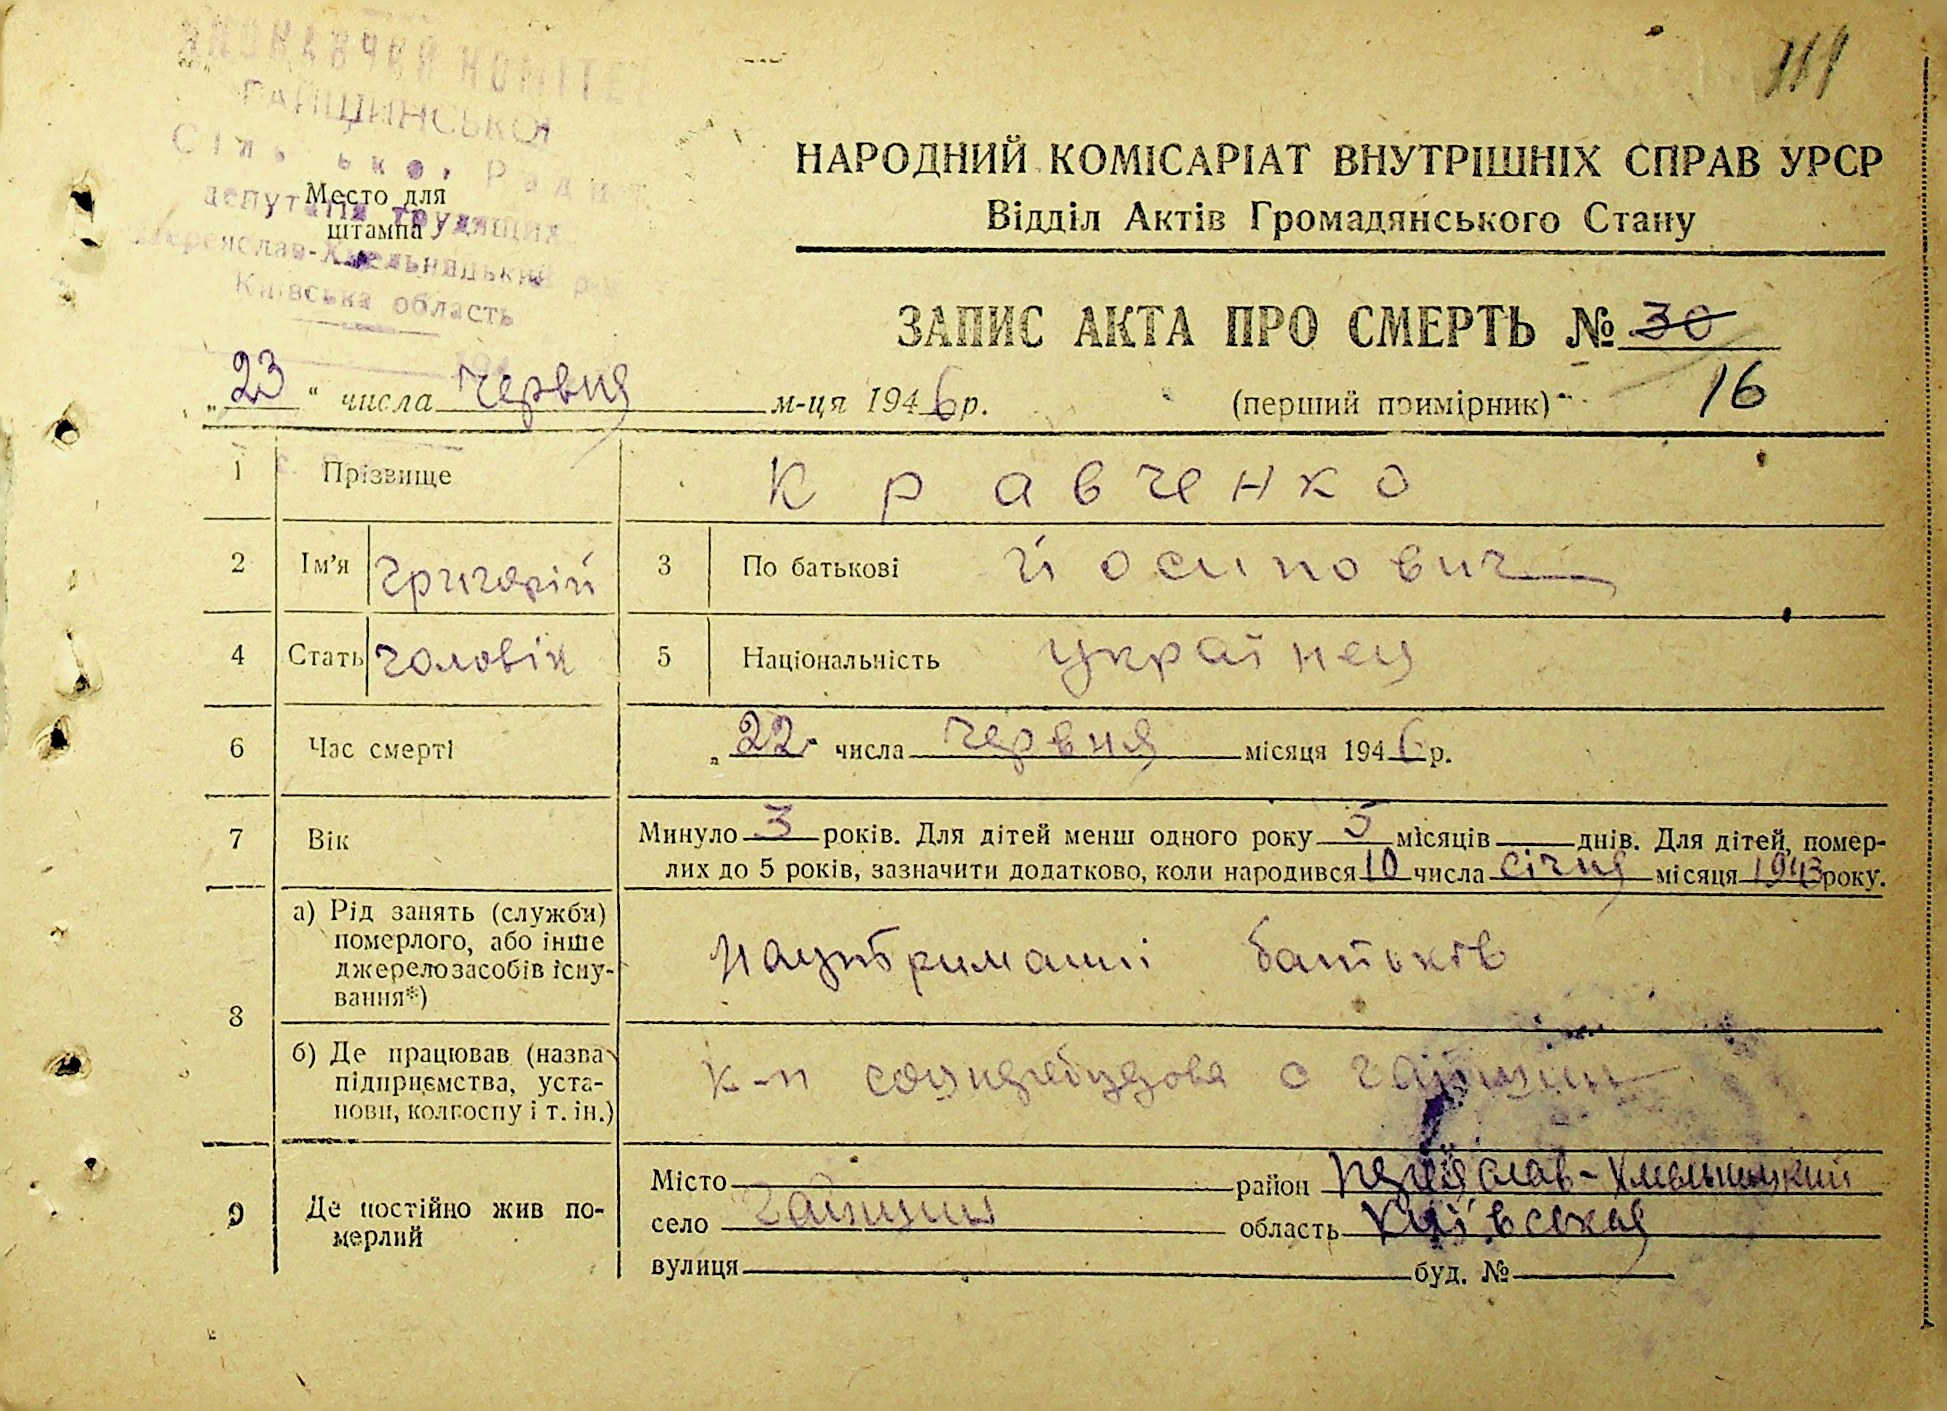 ВИКОНАВЧИЙ КОМІТЕТ
ГАЙШИНСЬКОЇ
Сільської Ради
депутатів трудящих
Переяслав-Хмельницький р
Київська область
Место для
штампа
НАРОДНИЙ КОМІСАРІАТ ВНУТРІШНІХ СПРАВ УРСР
Відділ Актів Громадянського Стану
ЗАПИС АКТА ПРО СМЕРТЬ № 30
„23“ числа червня м-ця 1946 р. (перший примірник) 16
1 Прізвище Кравченко
2 Ім’я Григорій 3 По батькові Йосипович
4 Стать чоловік 5 Національність українец
6 Час смерті „22 числа червня місяця 1946 р.
7 Вік Минуло 3 років. Для дітей менш одного року 5 місяців днів. Для дітей, помер-
лих до 5 років, зазначити додатково, коли народився 10 числа січня місяця 1943 року.
8 а) Рід занять (служби)
померлого, або інше
джерело засобів існу-
вання*)
на утриманні батьків
б) Де працював (назва
підприємства, уста-
нови, колгоспу і т. ін.)
к-п с Гайшин
9 Де постійно жив по-
мерлий
Місто район Переяслав-Хмельницкий
село Гайшин область Київская
вулиця буд. №